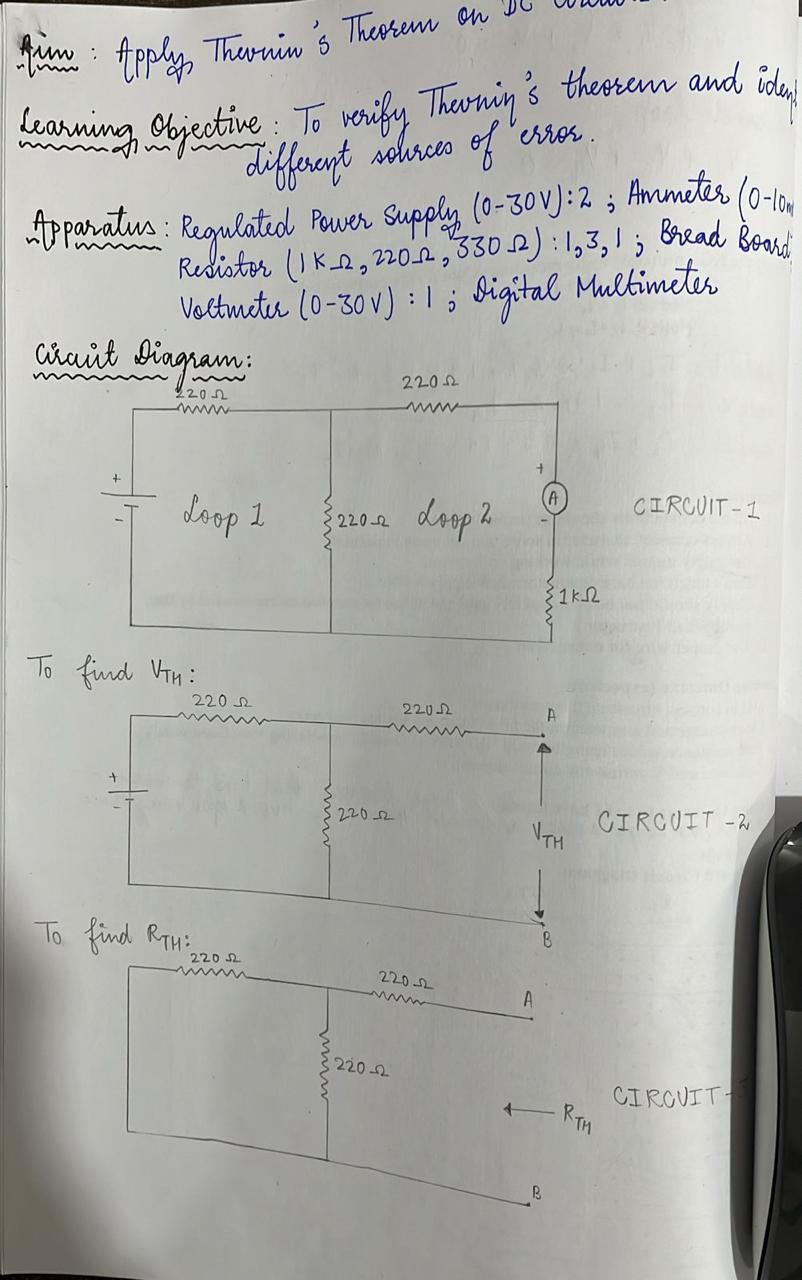 Aim : Apply Thevnin's Theorem on DC
Learning Objective : To verify Thevnin's theorem and iden
different sources of error.
Apparatus : Regulated Power Supply (0-30V):2 ; Ammeter (0-10m
Resistor (1KΩ, 220Ω, 330Ω) : 1,3,1 ; Bread Board
Voltmeter (0-30V) : 1 ; Digital Multimeter
Circuit Diagram:
220Ω 220Ω
+ +
- Loop 1 220Ω Loop 2 A CIRCUIT-1
-
1KΩ
To find VTH:
220Ω 220Ω A
+
- 220Ω VTH CIRCUIT-2
B
To find RTH:
220Ω 220Ω A
220Ω
RTH CIRCUIT-
B